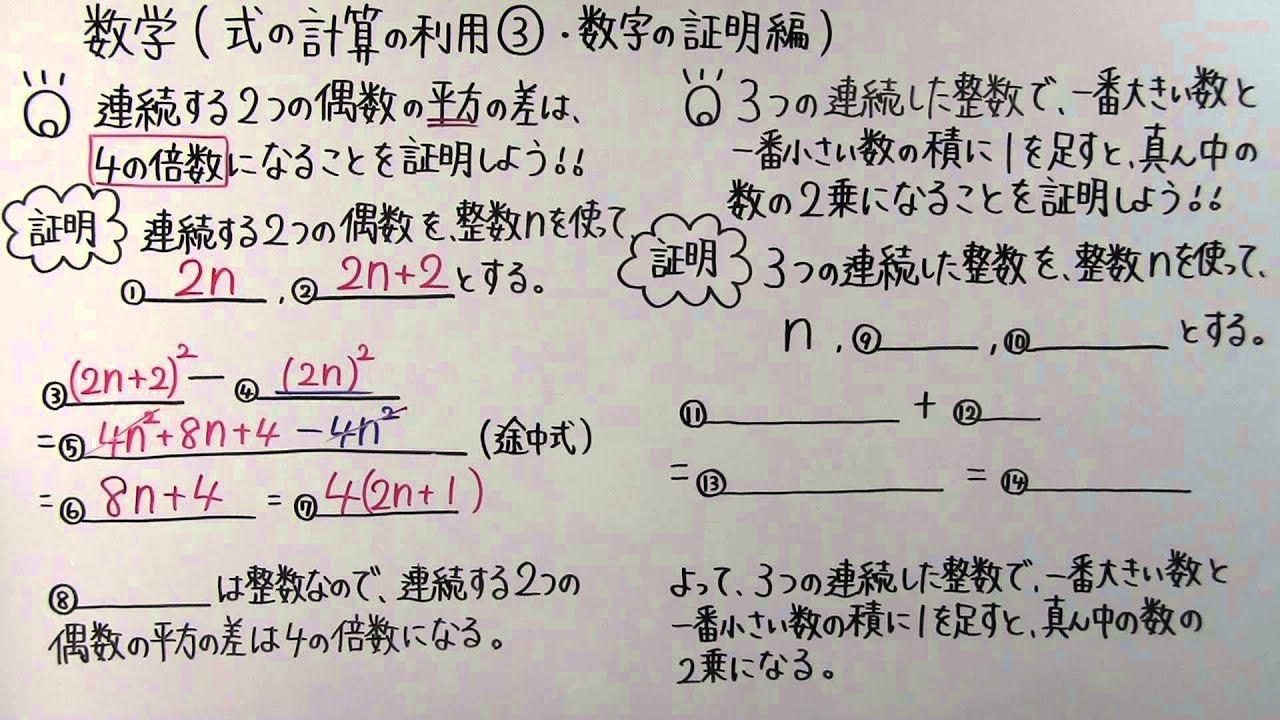 数学(式の計算の利用③・数字の証明編)
連続する2つの偶数の平方の差は、
4の倍数になることを証明しよう!!
証明
連続する2つの偶数を、整数nを使って
① 2n , ② 2n+2 とする。
③ (2n+2)² − ④ (2n)²
=⑤ 4n²+8n+4 −4n² (途中式)
=⑥ 8n+4 =⑦ 4(2n+1)
⑧ は整数なので、連続する2つの
偶数の平方の差は4の倍数になる。
3つの連続した整数で、一番大きい数と
一番小さい数の積に1を足すと、真ん中の
数の2乗になることを証明しよう!!
証明
3つの連続した整数を、整数nを使って、
n , ⑨ , ⑩ とする。
⑪ + ⑫
=⑬ =⑭
よって、3つの連続した整数で、一番大きい数と
一番小さい数の積に1を足すと、真ん中の数の
2乗になる。